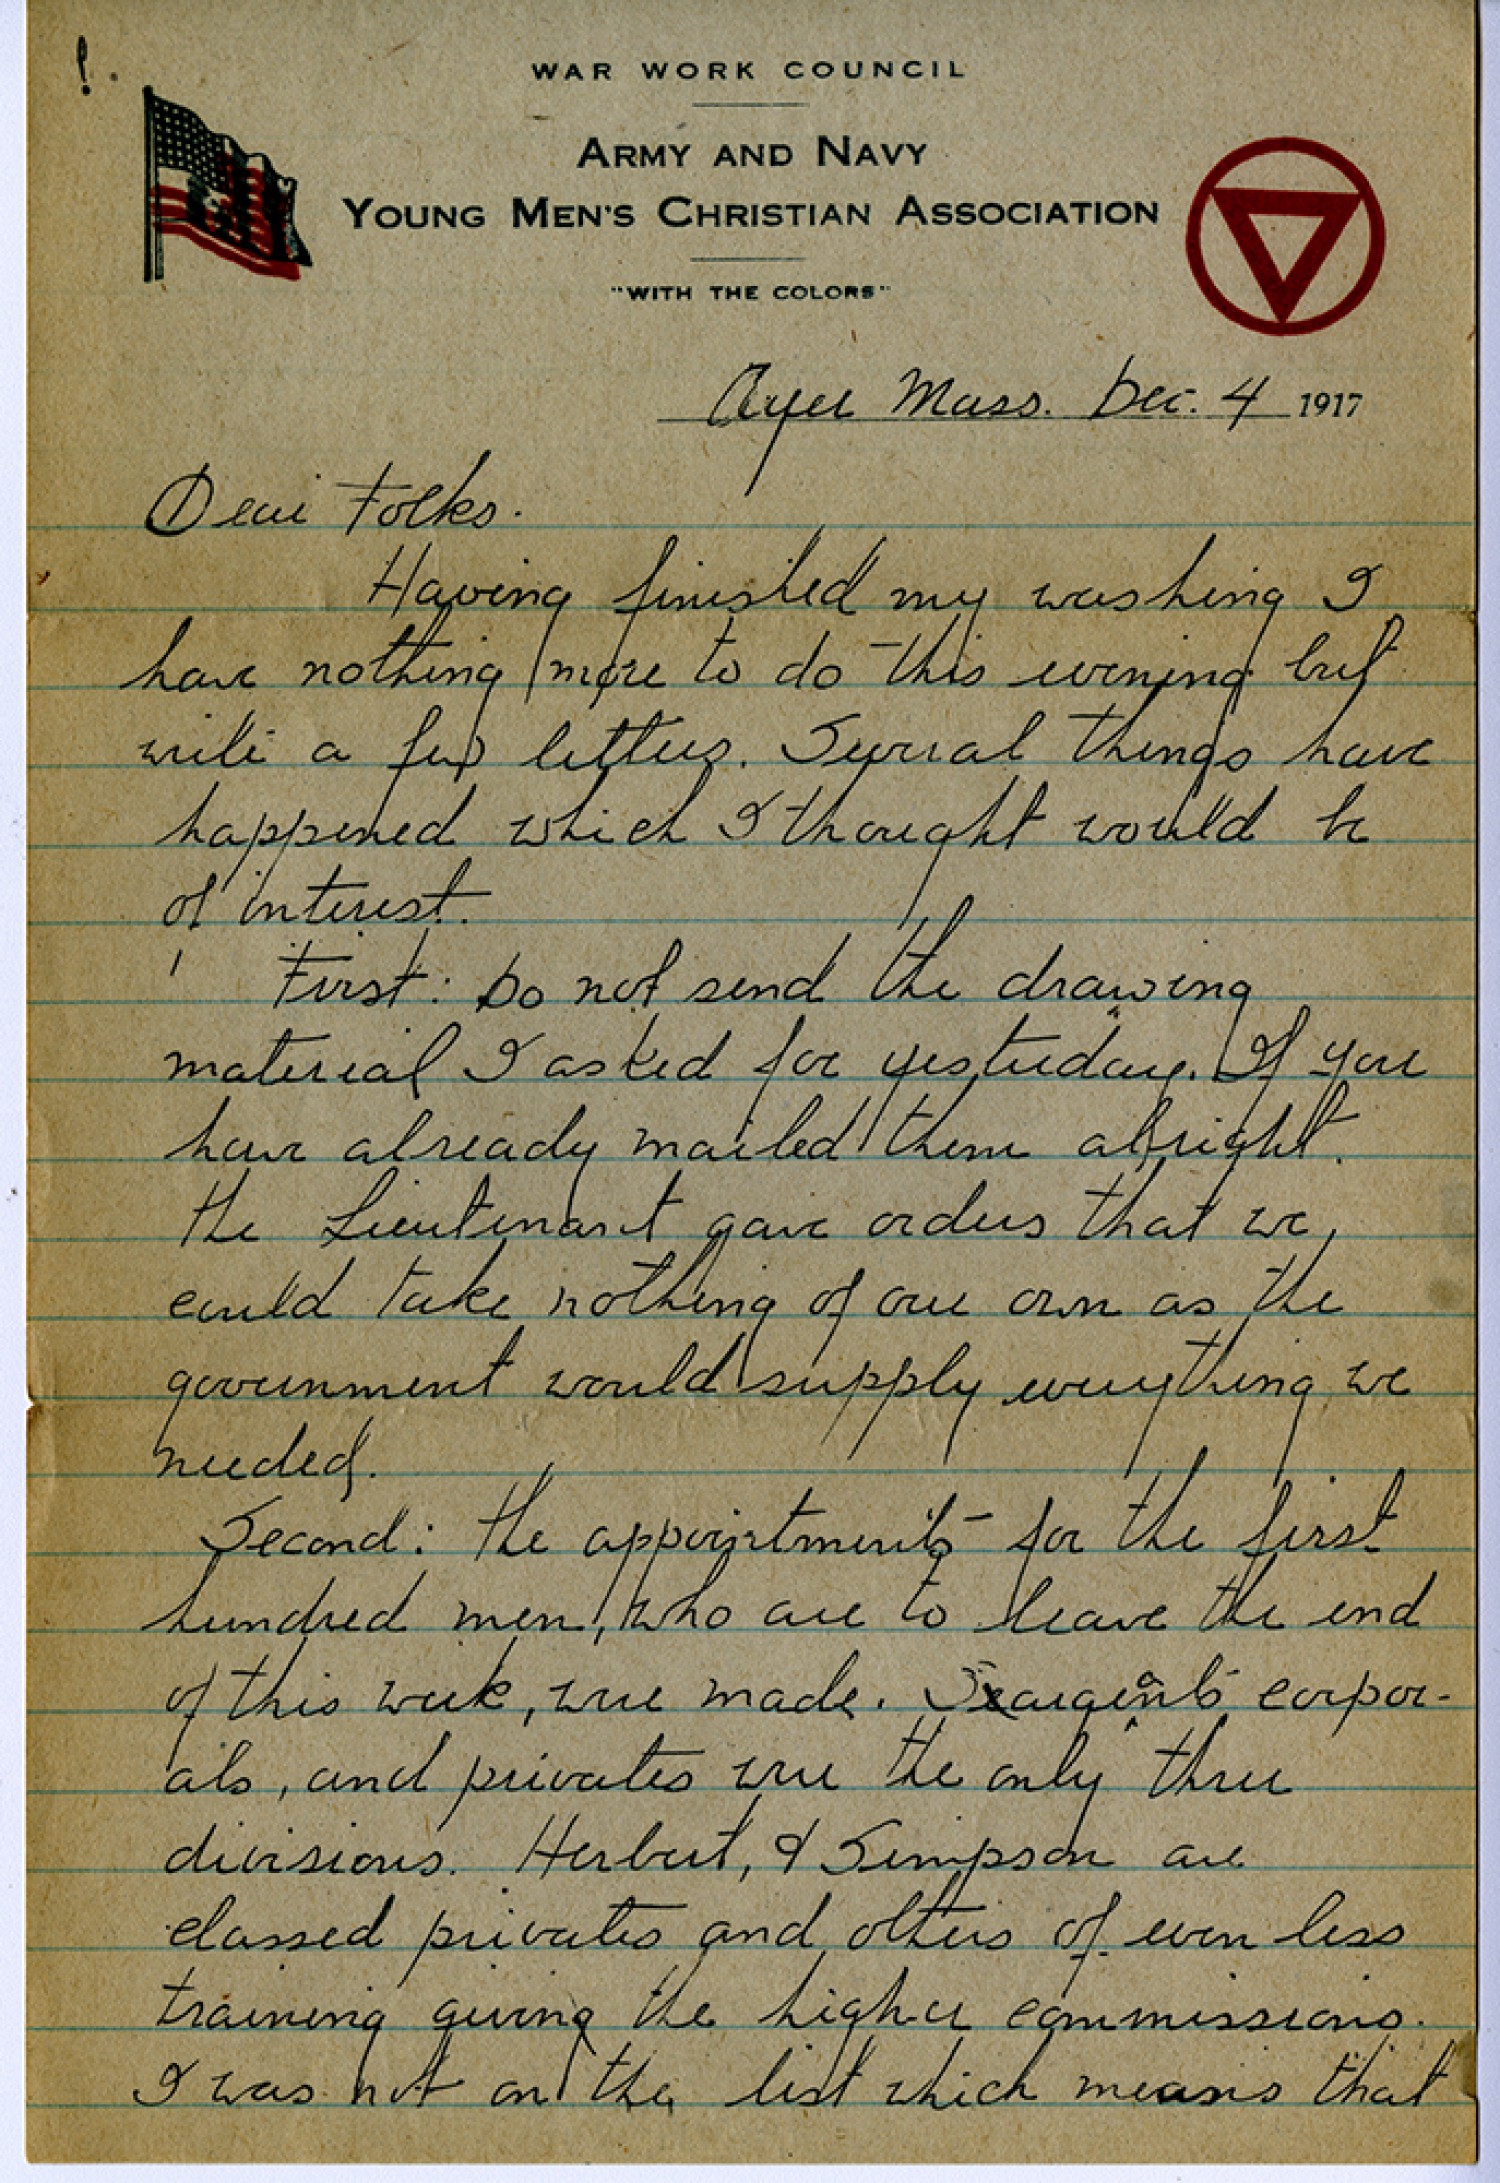 1.
WAR WORK COUNCIL
ARMY AND NAVY
YOUNG MEN'S CHRISTIAN ASSOCIATION
"WITH THE COLORS"
Ayer Mass. Dec. 4 1917
Dear Folks.
Having finished my washing I
have nothing more to do this evening but
write a few letters. Several things have
happened which I thought would be
of interest.
First: Do not send the drawing
material I asked for yesterday. If you
have already mailed them alright.
The Lieutenant gave orders that we
could take nothing of our own as the
government would supply everything we
needed.
Second: The appointments for the first
hundred men, who are to leave the end
of this week, were made. Seargents corpor-
als, and privates were the only three
divisions. Herbert, & Simpson are
classed privates and others of even less
training giving the higher commissions.
I was not on the list which means that